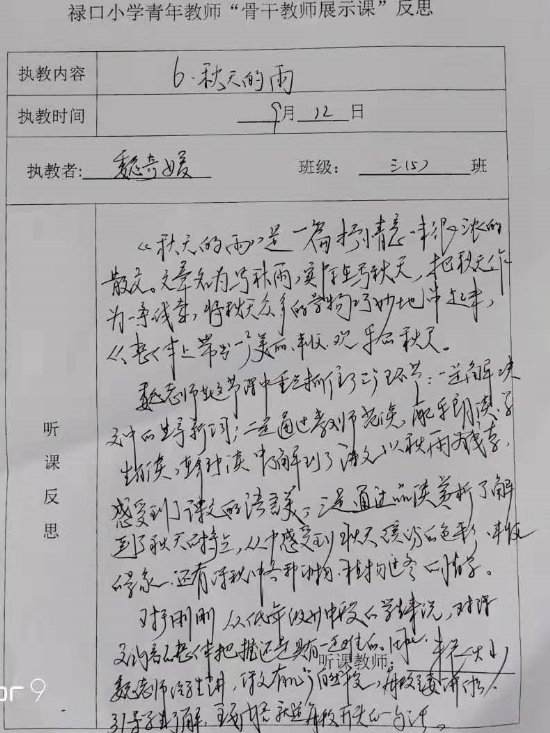 禄口小学青年教师“骨干教师展示课”反思
执教内容 6.秋天的雨
执教时间 9月12日
执教者: 魏奇媛 班级: 三(5) 班
听课反思
《秋天的雨》是一篇抒情意味很浓的
散文。文章名为写秋雨,实际在写秋天,把秋天作
为一条线索,将秋天众多的景物巧妙地串起来,
从整体上带出一个美丽、丰收、欢乐的秋天。
魏老师在这节课中重点抓住了三个环节:一是解决
文中的生字新词;二是通过教师范读,配乐朗读,学
生读,中了解到了课文以秋雨为线索,
感受到了课文的语言美;三是通过品读赏析了解
到了秋天的特点,从中感受到秋天缤纷的色彩,丰收
的景象,还有深秋中各种动物、植物过冬的情景。
对于刚刚从低年级升中段的学生来说,对课
文内容的整体把握还是具有一定
听课教师:
魏老师给学生讲,课文有几个自然段,
引导学生了解,就是每段开头的一句话。
or 9